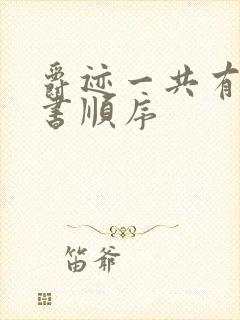 爵迹一共有
书顺序
笛爷